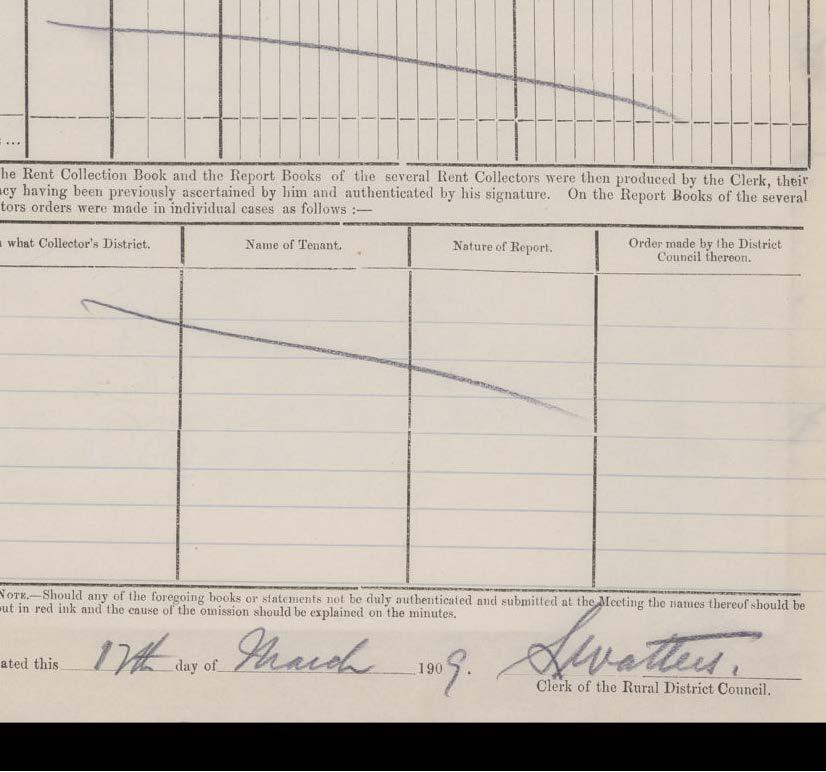 ...
he Rent Collection Book and the Report Books of the several Rent Collectors were then produced by the Clerk, their
cy having been previously ascertained by him and authenticated by his signature. On the Report Books of the several
tors orders were made in individual cases as follows :—
what Collector's District. Name of Tenant. Nature of Report. Order made by the District
Council thereon.
NOTE.—Should any of the foregoing books or statements not be duly authenticated and submitted at the Meeting the names thereof should be
ut in red ink and the cause of the omission should be explained on the minutes.
ated this 17th day of March 1909. S Watters.
Clerk of the Rural District Council.